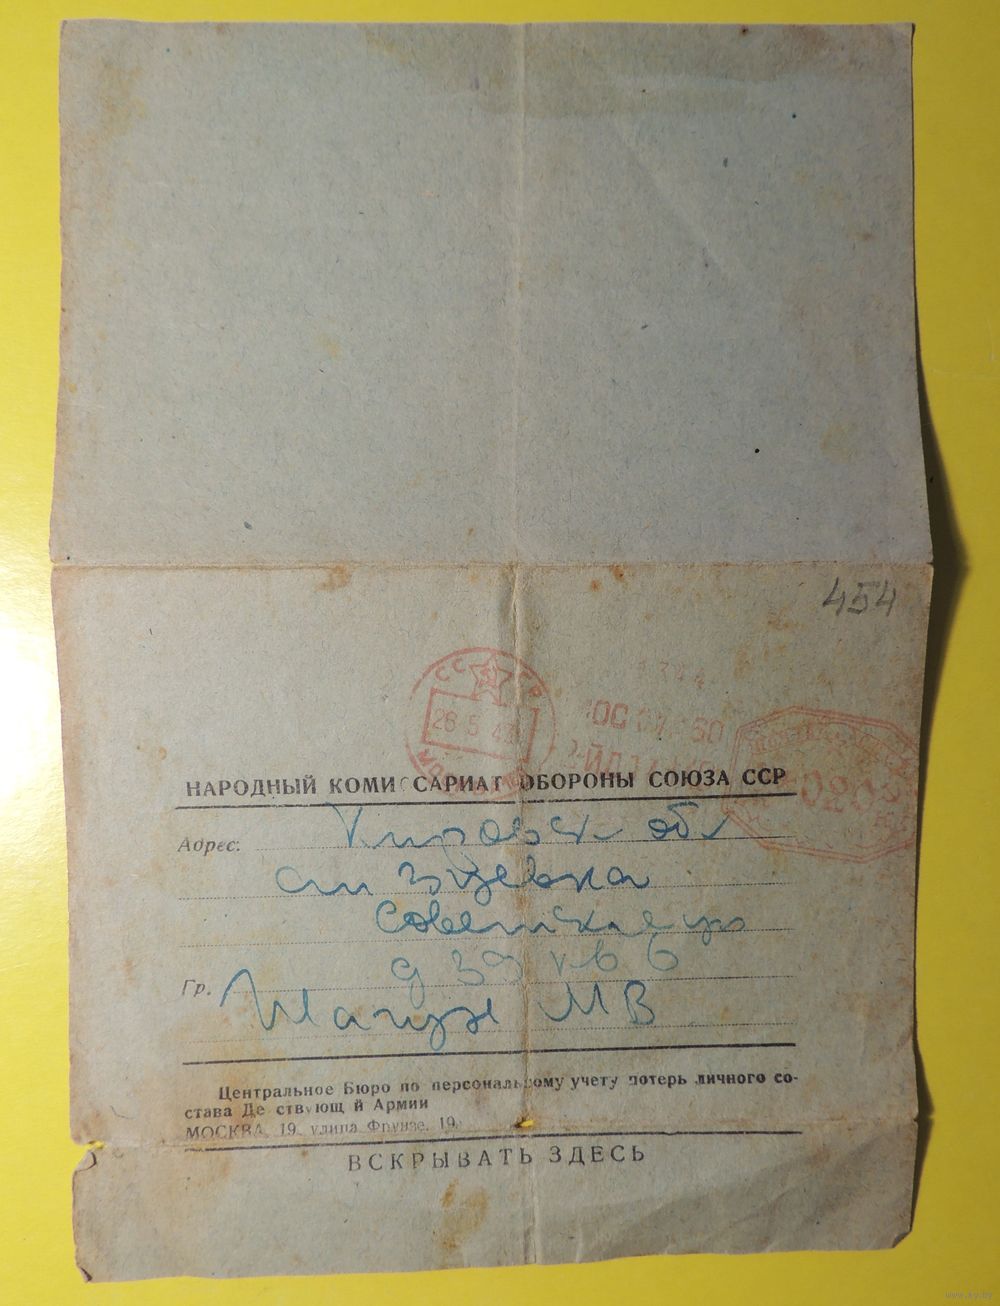 454
СССР
26 5 4
НАРОДНЫЙ КОМИССАРИАТ ОБОРОНЫ СОЮЗА ССР
Адрес: Кировск обл
ст Зуевка
Советская ул
д 39 кв 6
Гр. МВ
Центральное Бюро по персональному учету потерь личного со-
става Де ствующ й Армии
МОСКВА, 19, улица Фрунзе, 19.
ВСКРЫВАТЬ ЗДЕСЬ
www.ay.by